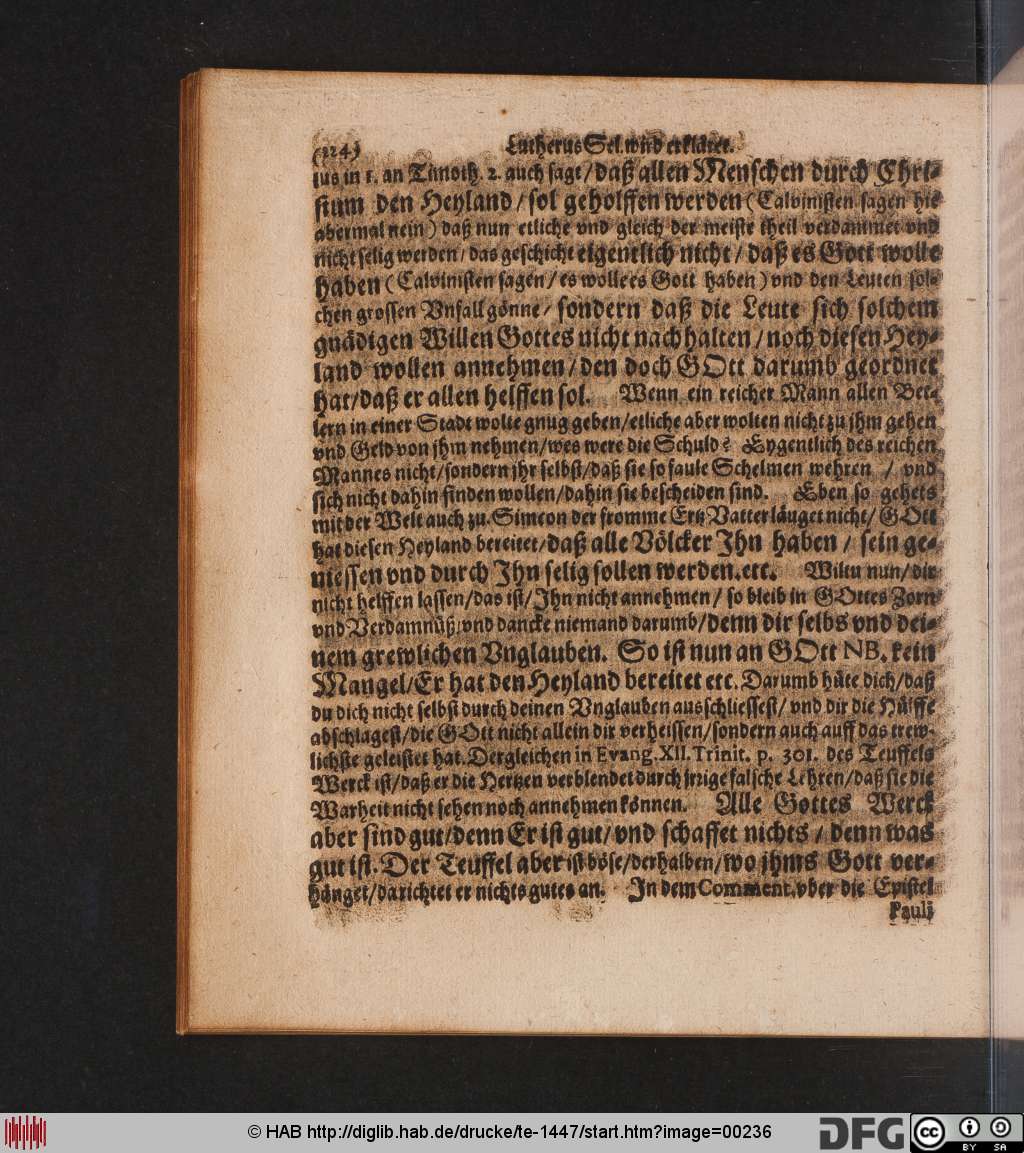 (224) Lutherus Sel. wird erkläret.
lus in 1. an Timoth. 2. auch sagt/ daß allen Menschen durch Chri-
stum den Heyland/ sol geholffen werden (Calvinisten sagen hie
abermal nein) daß nun etliche vnd gleich der meiste theil verdammet vnd
nicht selig werden/ das geschicht eigentlich nicht/ daß es Gott wolle
haben (Calvinisten sagen/ es wolle es Gott haben) vnd den Leuten sol-
chen grossen Vnfall gönne/ sondern daß die Leute sich solchem
gnädigen Willen Gottes nicht nach halten/ noch diesen Hey-
land wollen annehmen/ den doch GOtt darumb geordnet
hat/ daß er allen helffen sol. Wenn ein reicher Mann allen Bet-
lern in einer Stadt wolte gnug geben/ etliche aber wolten nicht zu jhm gehen
vnd Geld von jhm nehmen/ wes were die Schuld? Eygentlich des reichen
Mannes nicht/ sondern jhr selbst/ daß sie so faule Schelmen wehren / vnd
sich nicht dahin finden wollen/ dahin sie bescheiden sind. Eben so gehets
mit der Welt auch zu. Simeon der fromme Ertz Vatter läuget nicht/ GOtt
hat diesen Heyland bereitet/ daß alle Völcker Jhn haben / sein ge-
niessen vnd durch Jhn selig sollen werden. ett. Wiltu nun/ dir
nicht helffen lassen/ das ist/ Jhn nicht annehmen/ so bleib in GOttes Zorn
vnd Verdamnüß/ vnd dancke niemand darumb/ denn dir selbs vnd dei-
nem grewlichen Vnglauben. So ist nun an GOtt NB. kein
Mangel/ Er hat den Heyland bereitet ett. Darumb hüte dich/ daß
du dich nicht selbst durch deinen Vnglauben ausschliessest/ vnd dir die Hülffe
abschlagest/ die GOtt nicht allein dir verheissen/ sondern auch auff das trew-
lichste geleistet hat. Dergleichen in Evang. XII. Trinit. p. 301. des Teuffels
Werck ist/ daß er die Hertzen verblendet durch jrrige falsche Lehren/ daß sie die
Warheit nicht sehen noch annehmen können. Alle Gottes Werck
aber sind gut/ denn Er ist gut/ vnd schaffet nichts / denn was
gut ist. Der Teuffel aber ist böse/ derhalben/ wo jhms Gott ver-
hänget/ da richtet er nichts gutes an. In dem Comment. vber die Epistel
Pauli
© HAB http://diglib.hab.de/drucke/te-1447/start.htm?image=00236
DFG
cc BY SA